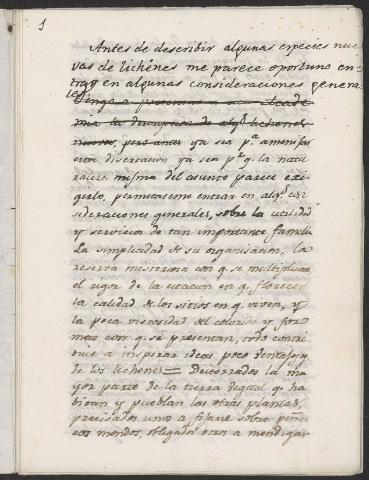 1
Antes de describir algunas especies nue
vas de lichênes me parece oportuno en
trar en algunas consideraciones genera
les
Vengo a presentar a Acade
mia la descripcion de algs. lichenes
nuevos, pero antes ya sea pa. amenisar
esta disertacion ya sea pr. q. la natu
raleza misma del asunto parece exi
girlo, permitaseme entrar en algs. con
sideraciones generales, sobre la utilidad
y servicios de tan importante familia
La simplicidad de su organisacion, la
reserva misteriosa con q. se multiplican,
el rigor de la estacion en q. florecen
la calidad de los sitios en q. viven, y
la poca viveza del colorido y for
mas con q. se presentan, todo contri
buie a inspirar ideas poco ventajosas
de los Lichenes = Desterrados la ma
yor parte de la tierra vegetal q. ha
bitan y pueblan las otras plantas,
precisados unos a fijarse sobre peñas
cos mondos, obligados otros a mendigar